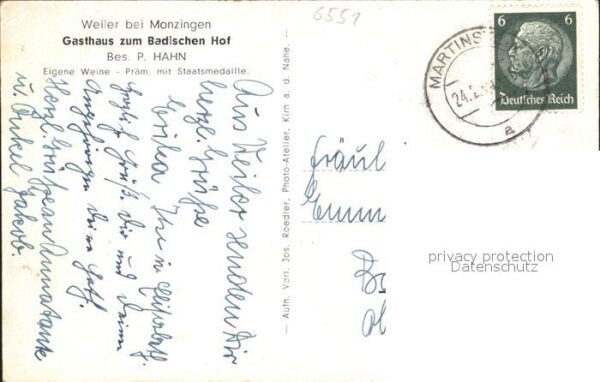 Weiler bei Monzingen
Gasthaus zum Badischen Hof
Bes. P. HAHN
Eigene Weine - Präm. mit Staatsmedaille.
6551
MARTINS
24.2.
a
6 6
Deutsches Reich
Aufn. Verl. Jos. Roedler, Photo-Atelier, Kirn a. d. Nahe.
Aus Weiler senden Dir
herzl. Grüße
Erika
Grüße Dir und Deinen
Angehörigen Dein
Herzl. Grüße an
u. Onkel Jakob.
Fräul
Emm
privacy protection
Datenschutz